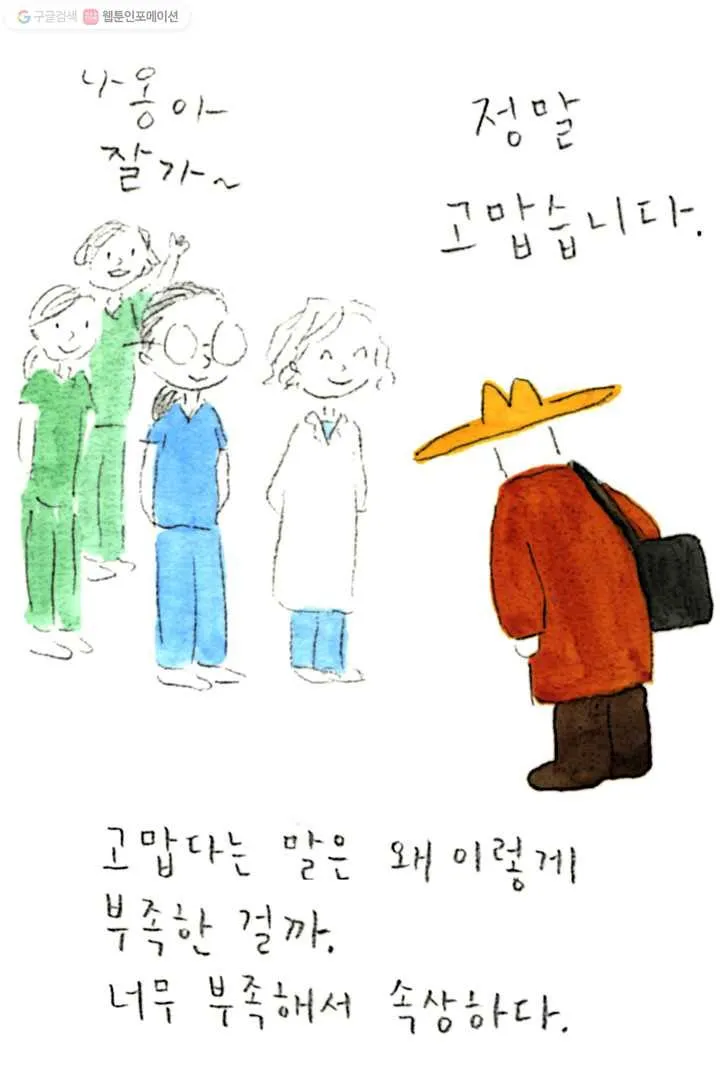 구글검색 웹툰인포메이션
나옹아
잘가~
정말
고맙습니다.
고맙다는 말은 왜 이렇게
부족한 걸까.
너무 부족해서 속상하다.